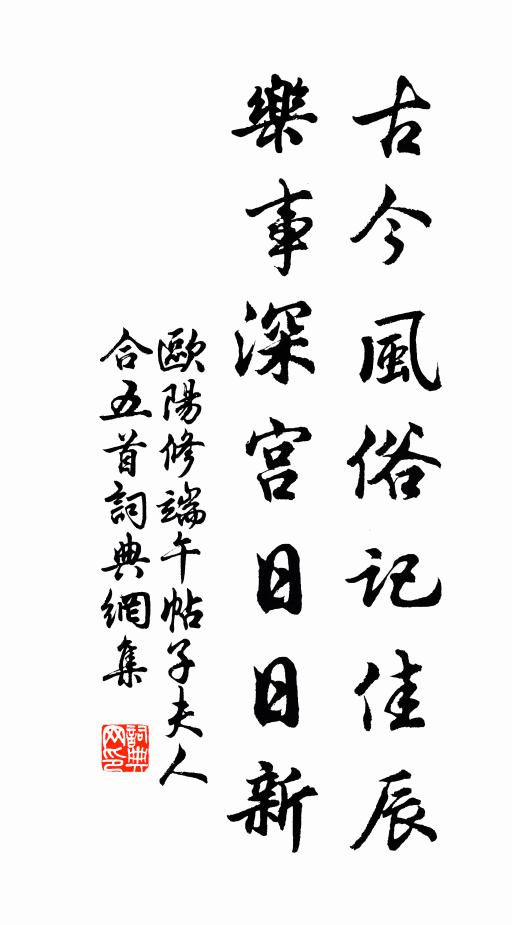 古今風俗記佳辰
樂事深宮日日新
歐陽修端午帖子夫人
合五首詞典網集
詞典网印